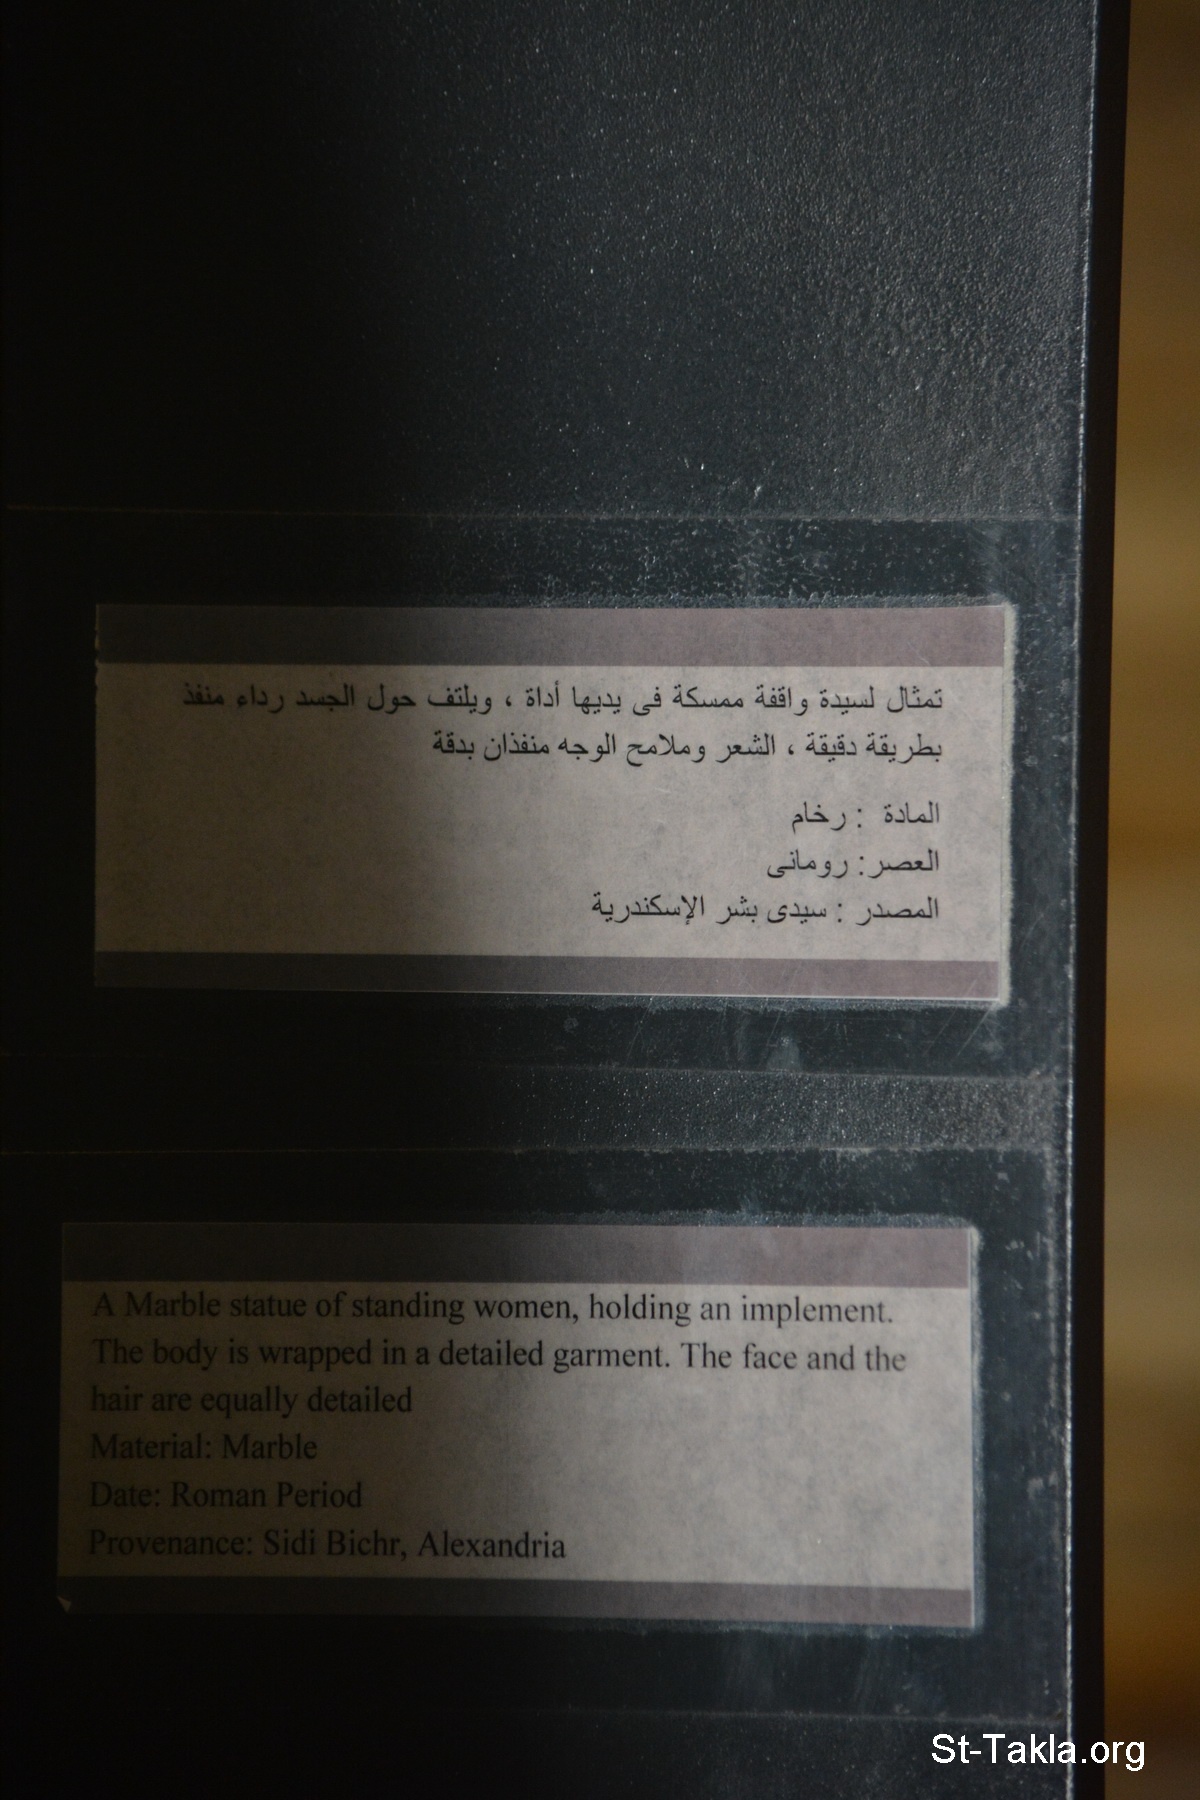 تمثال لسيدة واقفة ممسكة فى يديها أداة ، ويلتف حول الجسد رداء منفذ
بطريقة دقيقة ، الشعر وملامح الوجه منفذان بدقة
المادة : رخام
العصر: رومانى
المصدر : سيدى بشر الإسكندرية
A Marble statue of standing women, holding an implement.
The body is wrapped in a detailed garment. The face and the
hair are equally detailed
Material: Marble
Date: Roman Period
Provenance: Sidi Bichr, Alexandria
St-Takla.org